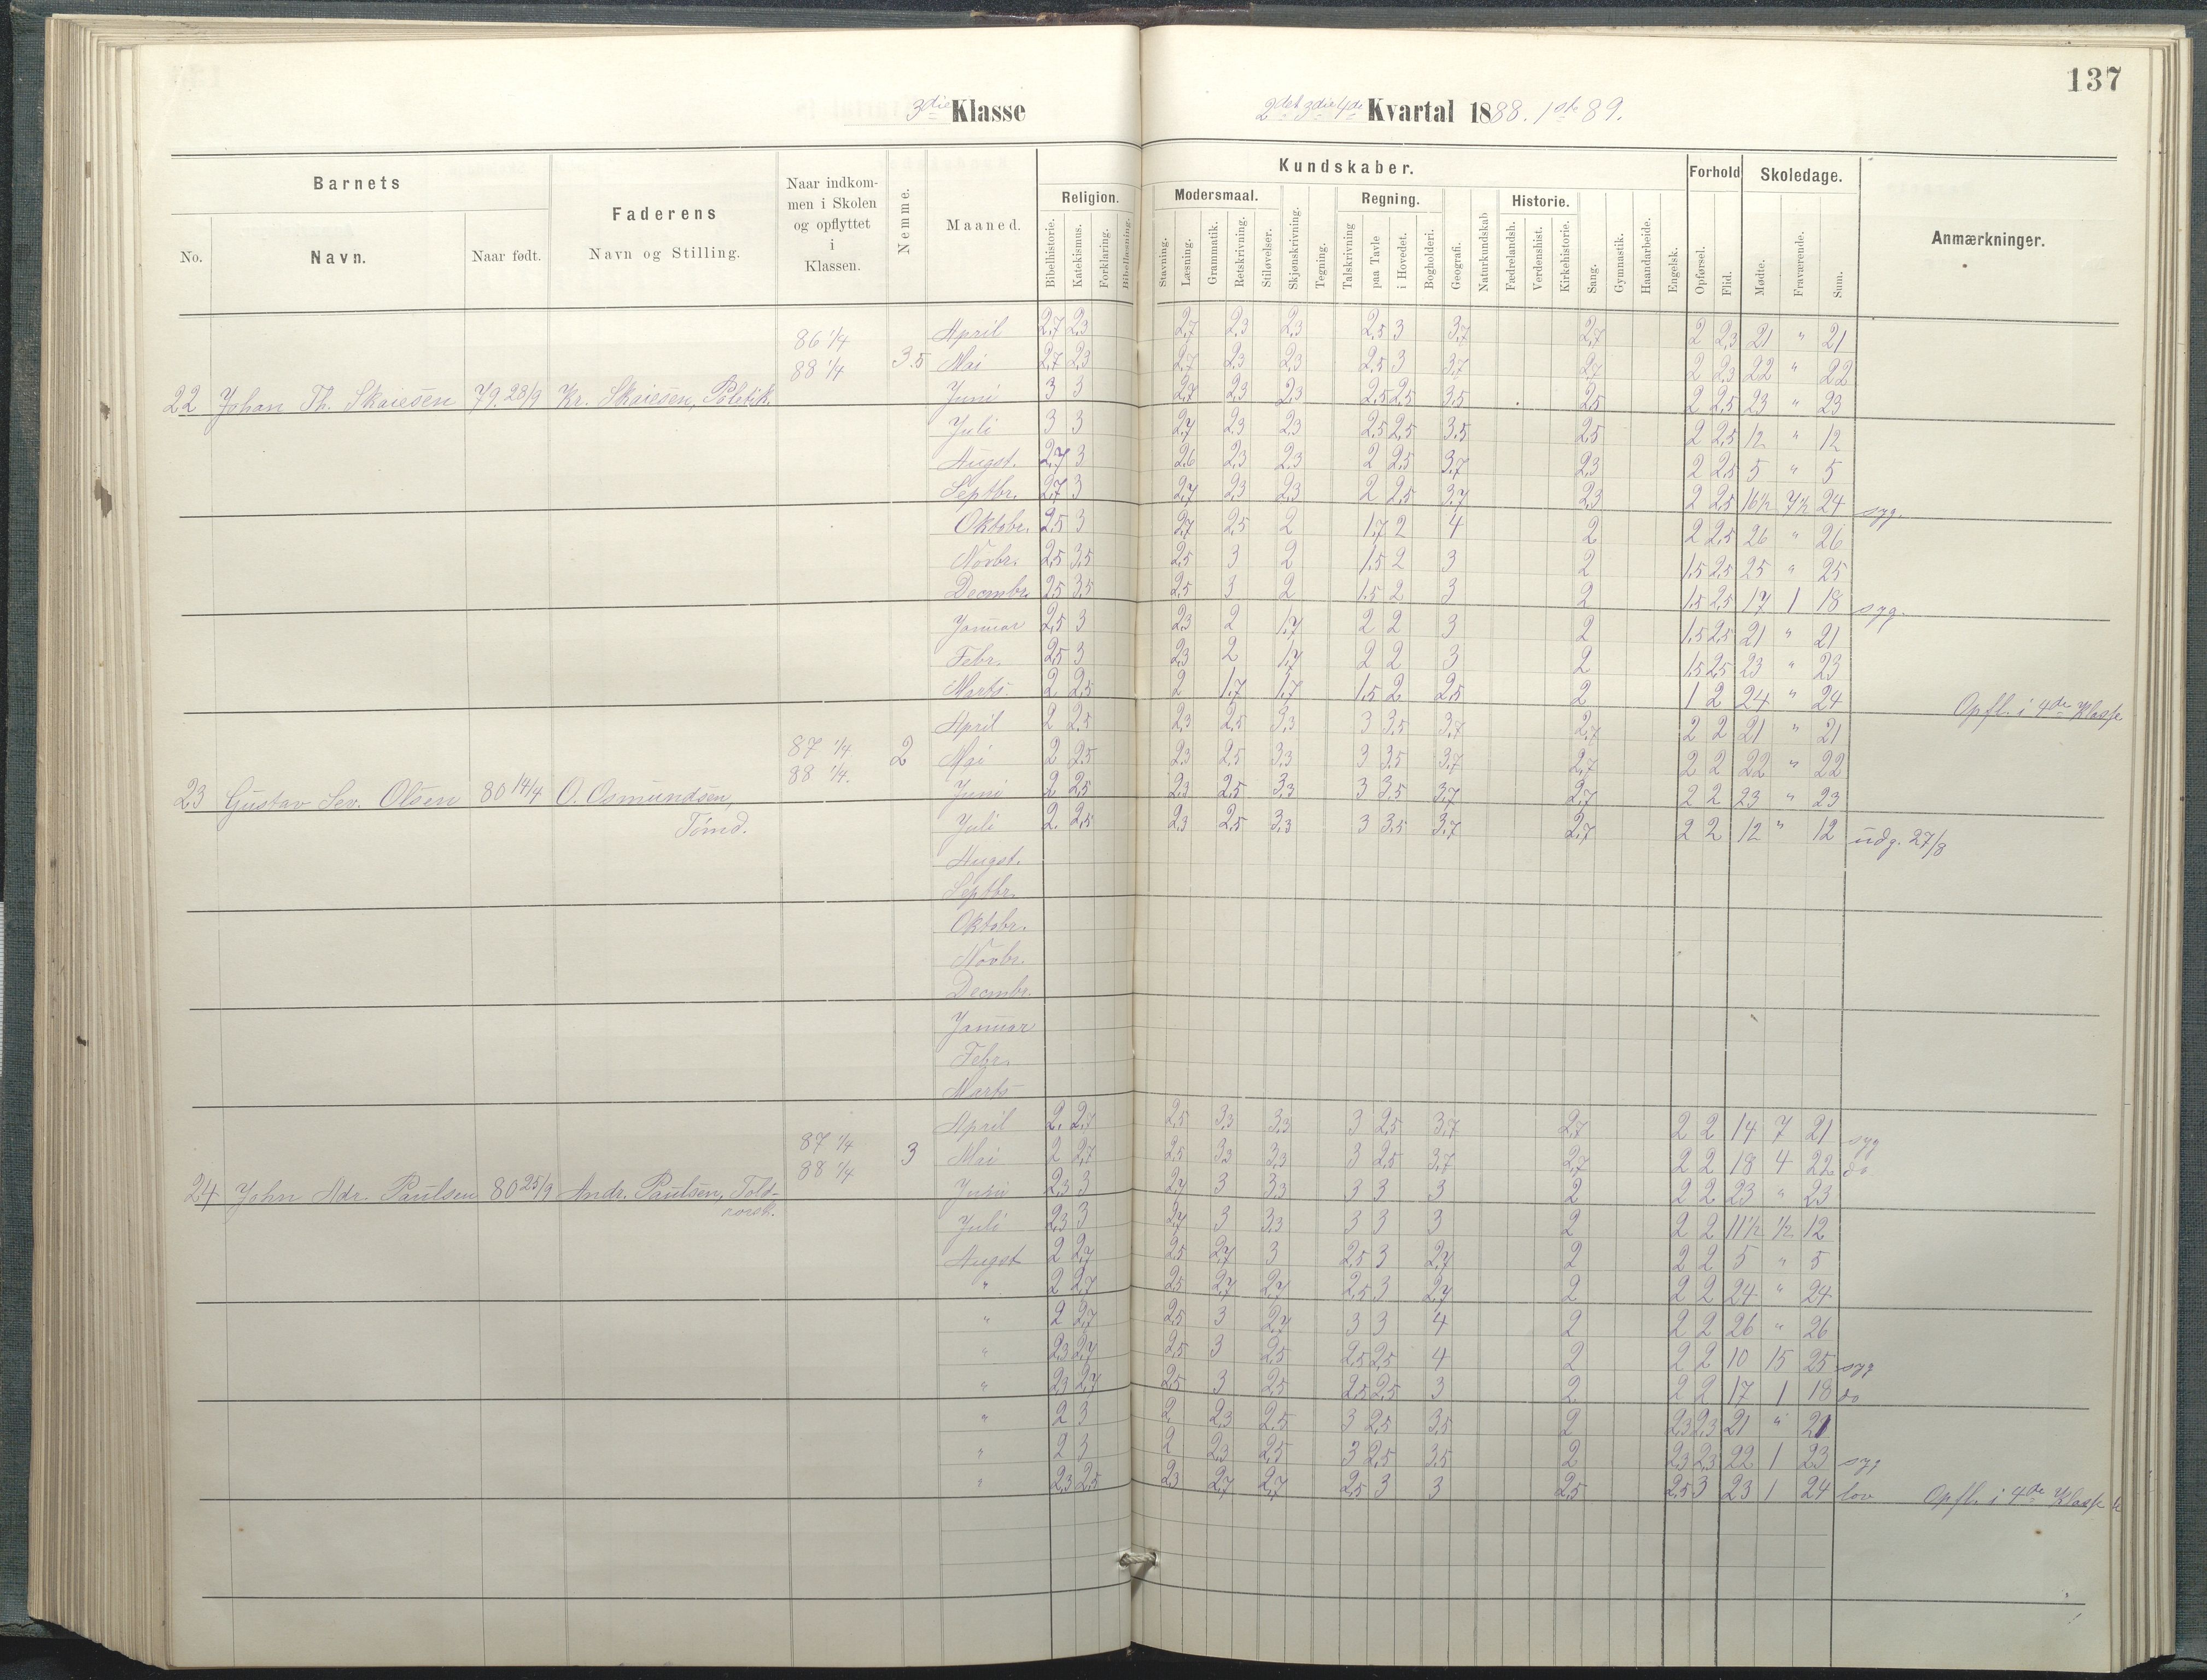 137
3die Klasse 2det 3die 4de Kvartal 1888. 1ste 89.
Barnets
No.
Navn.
Naar født.
Faderens
Navn og Stilling.
Naar indkom-
men i Skolen
og opflyttet
i
Klassen.
Nemme.
Maaned.
Kundskaber.
Religion.
Bibelhistorie.
Katekismus.
Forklaring.
Bibellæsning.
Modersmaal.
Stavning.
Læsning.
Grammatik.
Retskrivning.
Stiløvelser.
Skjønskrivning.
Tegning.
Regning.
Talskrivning
paa Tavle
i Hovedet.
Bogholderi.
Geografi.
Naturkundskab
Historie.
Fædrelandsh.
Verdenshist.
Kirkehistorie.
Sang.
Gymnastik.
Haandarbeide.
Engelsk.
Forhold
Opførsel.
Flid.
Skoledage.
Mødte.
Fraværende.
Sum.
Anmærkninger.
22 Johan Th. Skaiesen 79. 28/9 Kr. Skaiesen, Politik.
86 1/4
88 1/4
3.5
April 2,7 2,3 2,7 2,3 2,3 2,5 3 3,7 2,7 2 2,3 21 " 21
Mai 2,7 2,3 2,7 2,3 2,3 2,5 3 3,7 2,7 2 2,3 22 " 22
Juni 3 3 2,7 2,3 2,3 2,5 2,5 3,5 2,5 2 2,5 23 " 23
Juli 3 3 2,7 2,3 2,3 2,5 2,5 3,5 2,5 2 2,5 12 " 12
Augst. 2,7 3 2,6 2,3 2,3 2 2,5 3,7 2,3 2 2,5 5 " 5
Septbr. 2,7 3 2,7 2,3 2,3 2 2,5 3,7 2,3 2 2,5 16½ 7½ 24 syg.
Oktobr. 2,5 3 2,7 2,5 2 1,7 2 4 2 2 2,5 26 " 26
Novbr. 2,5 3,5 2,5 3 2 1,5 2 3 2 1,5 2,5 25 " 25
Decmbr. 2,5 3,5 2,5 3 2 1,5 2 3 2 1,5 2,5 17 1 18 syg.
Januar 2,5 3 2,3 2 1,7 2 2 3 2 1,5 2,5 21 " 21
Febr. 2,5 3 2,3 2 1,7 2 2 3 2 1,5 2,5 23 " 23
Marts 2 2,5 2 1,7 1,7 1,5 2 2,5 2 1 2 24 " 24 Opfl. i 4de Klasse
23 Gustav Sev. Olsen 80 14/4 O. Osmundsen,
Tømd.
87 1/4
88 1/4.
2
April 2 2,5 2,3 2,5 3,3 3 3,5 3,7 2,7 2 2 21 " 21
Mai 2 2,5 2,3 2,5 3,3 3 3,5 3,7 2,7 2 2 22 " 22
Juni 2 2,5 2,3 2,5 3,3 3 3,5 3,7 2,7 2 2 23 " 23
Juli 2. 2,5 2,3 2,5 3,3 3 3,5 3,7 2,7 2 2 12 " 12 udg. 27/8
Augst.
Septbr.
Oktobr.
Novbr.
Decmbr.
Januar
Febr.
Marts
24 John Adr. Paulsen 80 25/9 Andr. Paulsen, Told-
87 1/4
88 1/4
3
April 2. 2,7 2,5 3,3 3,3 3 2,5 3,7 2,7 2 2 14 7 21 syg
Mai 2 2,7 2,5 3,3 3,3 3 2,5 3,7 2,7 2 2 18 4 22 do
Juni 2,3 3 2,7 3 3,3 3 3 3 2 2 2 23 " 23
Juli 2,3 3 2,7 3 3,3 3 3 3 2 2 2 11½ ½ 12
Augst 2 2,7 2,5 2,7 3 2,5 3 2,7 2 2 2 5 " 5
" 2 2,7 2,5 2,7 2,7 2,5 3 2,7 2 2 2 24 " 24
" 2 2,7 2,5 3 2,7 3 3 4 2 2 2 26 " 26
" 2,3 2,7 2,5 3 2,5 2,5 2,5 4 2 2 2 10 15 25 syg
" 2,3 2,7 2,5 3 2,5 2,5 2,5 3 2 2 2 17 1 18 do
" 2 3 2 2,3 2,5 3 2,5 3,5 2 2,3 2,3 21 " 21
" 2 3 2 2,3 2,5 3 2,5 3,5 2 2,3 2,3 22 1 23 syg
" 2,3 2,5 2,3 2,7 2,7 2,5 3 3 2,5 2,5 3 23 1 24 lov Opfl. i 4de Klasse